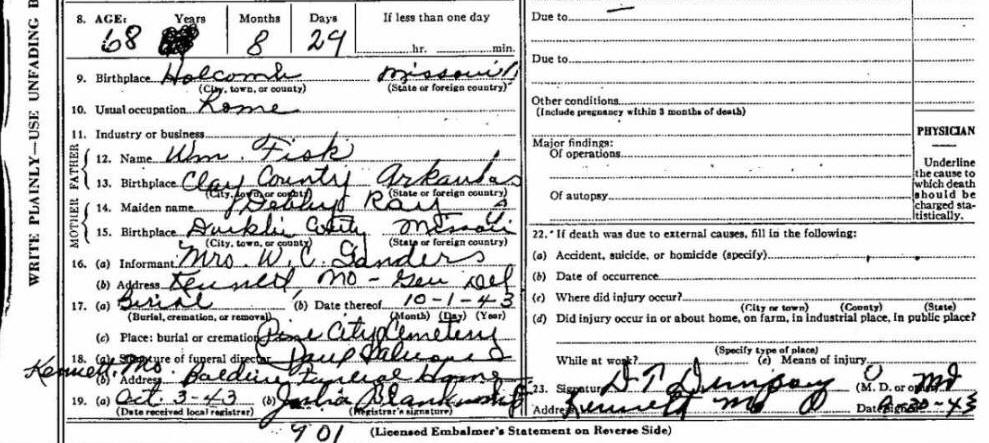 WRITE PLAINLY—USE UNFADING B
8. AGE: Years Months Days If less than one day
68 8 29 hr. min.
9. Birthplace Holcomb Missouri
(City, town, or county) (State or foreign country)
10. Usual occupation Home
11. Industry or business
FATHER
12. Name Wm. Fisk
13. Birthplace Clay County Arkansas
(City, town, or county) (State or foreign country)
MOTHER
14. Maiden name Debby Ray
15. Birthplace Dunklin County Missouri
(City, town, or county) (State or foreign country)
16. (a) Informant Mrs W. C. Sanders
(b) Address Kennett Mo - Gen Del
17. (a) Burial (b) Date thereof 10-1-43
(Burial, cremation, or removal) (Month) (Day) (Year)
(c) Place: burial or cremation Pine City Cemetery
18. (a) Signature of funeral director Paul
Kennett, Mo.
(b) Address Baldwin Funeral Home
19. (a) Oct. 3-43 (b) Blankenship
(Date received local registrar) (Registrar's signature)
901
(Licensed Embalmer's Statement on Reverse Side)
Due to
Due to
Other conditions
(Include pregnancy within 3 months of death)
Major findings:
Of operations
Of autopsy
PHYSICIAN
Underline
the cause to
which death
should be
charged sta-
tistically.
22. If death was due to external causes, fill in the following:
(a) Accident, suicide, or homicide (specify)
(b) Date of occurrence
(c) Where did injury occur?
(City or town) (County) (State)
(d) Did injury occur in or about home, on farm, in industrial place, in public place?
(Specify type of place)
While at work? (e) Means of injury
23. Signature D.T. Dempsay (M. D. or other) MD
Address Kennett Mo Date signed 9-30-43